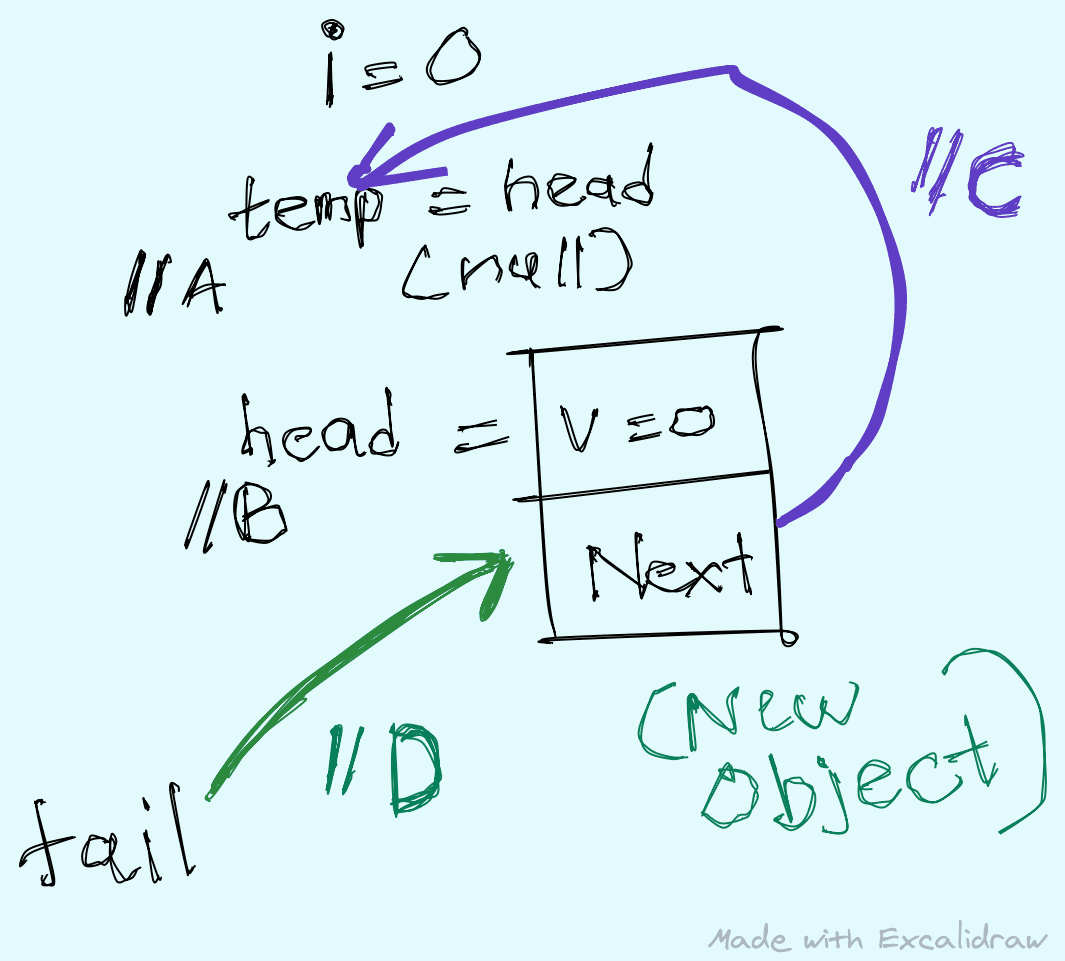 i = 0
temp = head
(null)
//A
//C
head = V = 0
//B
Next
(New
Object)
//D
tail
Made with Excalidraw